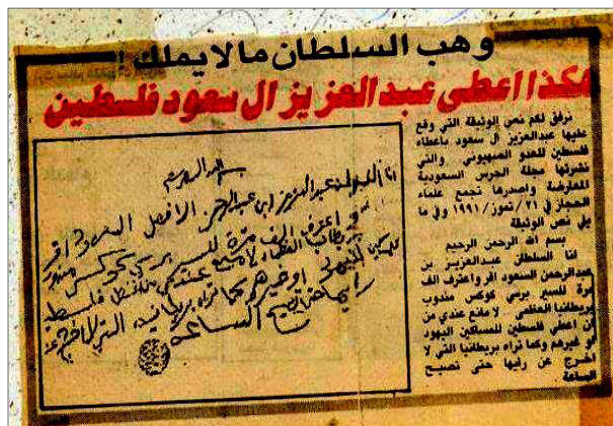 وهب السلطان مالايملك !
هكذا اعطى عبدالعزيز ال سعود فلسطين
نرفق لكم نص الوثيقة التي وقع
عليها عبدالعزيز ال سعود باعطاء
فلسطين للعدو الصهيوني والتي
نشرتها مجلة الحرس السعودية
المعارضة واصدرها تجمع علماء
الحجاز في ٢١ / تموز / ١٩٩١ وفي ما
يلي نص الوثيقة
بسم الله الرحمن الرحيم
انا السلطان عبدالعزيز بن
عبدالرحمن السعود اقر واعترف الف
مرة للسير برسي كوكس مندوب
بريطانيا العظمى لا مانع عندي من
ان اعطي فلسطين للمساكين اليهود
او غيرهم وكما تراه بريطانيا التي لا
اخرج عن رايها حتى تصيح
الساعة
انا السلطان عبدالعزيز ابن عبدالرحمن الافيصل السعود اقر
و اعترف الف مرة للسير برسي كوكس مندوب
بريطانيا العظمى لا مانع عندي فلسطين
او غيرهم كما تراه بريطانيا التي لا اخرج عن
رايها حتى تصيح الساعة